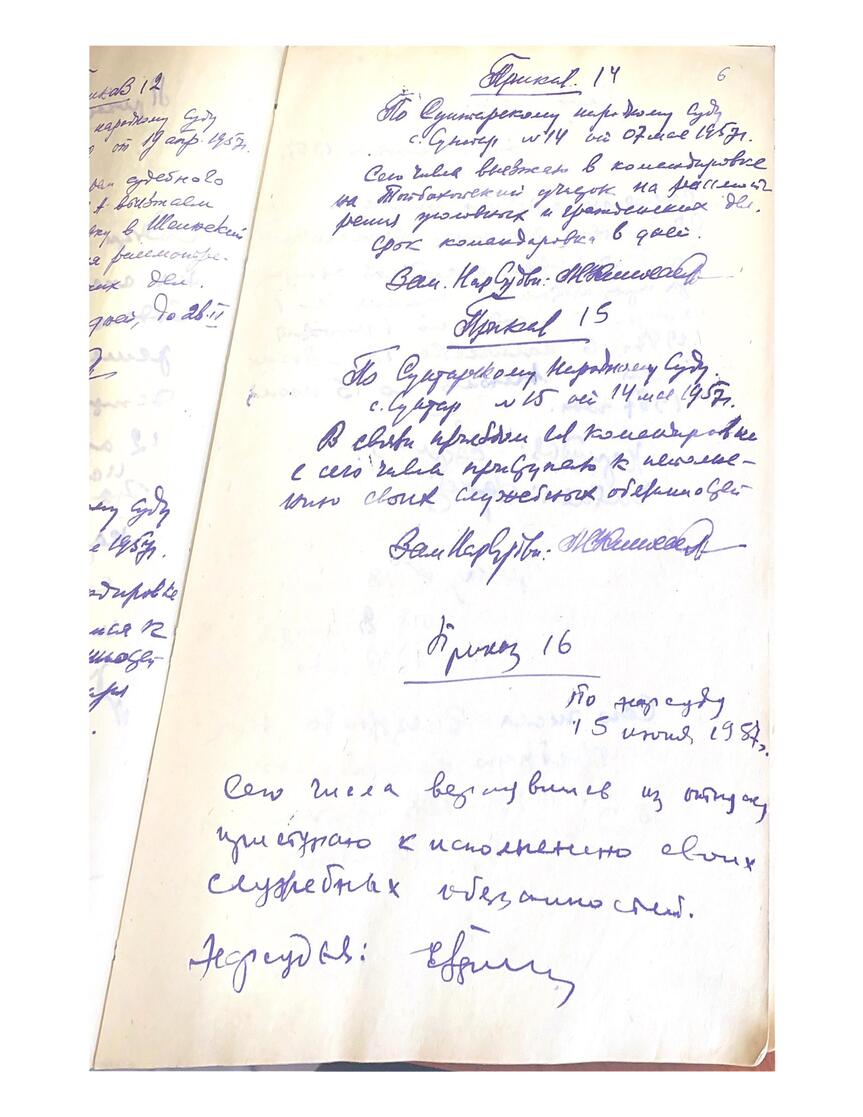 Приказ 12
народному Суду
от 19 апр. 1957г.
судебного
выезжаем
в Шеинский
рассмотре-
них дел.
дней, до 28.II
му Суду
е 1957г.
ндировке
Приказ. 14
6
По Сунтарскому народному Суду
с. Сунтар №14 от 07 мая 1957г.
Сего числа выезжаю в командировке
на Тойбохойский участок на рассмот-
рения уголовных и гражданских дел.
Срок командировка 8 дней.
Зам. НарСудьи:
Приказ 15
По Сунтарскому Народному Суду.
с. Сунтар №15 от 14 мая 1957г.
В связи приездом из командировки
с сего числа приступаю к исполне-
нию своих служебных обезанностей
Зам НарСудьи:
Приказ 16
По нарсуду
15 июня 1957г.
Сего числа вернувшись из отпуска
приступаю к исполнению своих
служебных обезанностей.
Нарсудья: